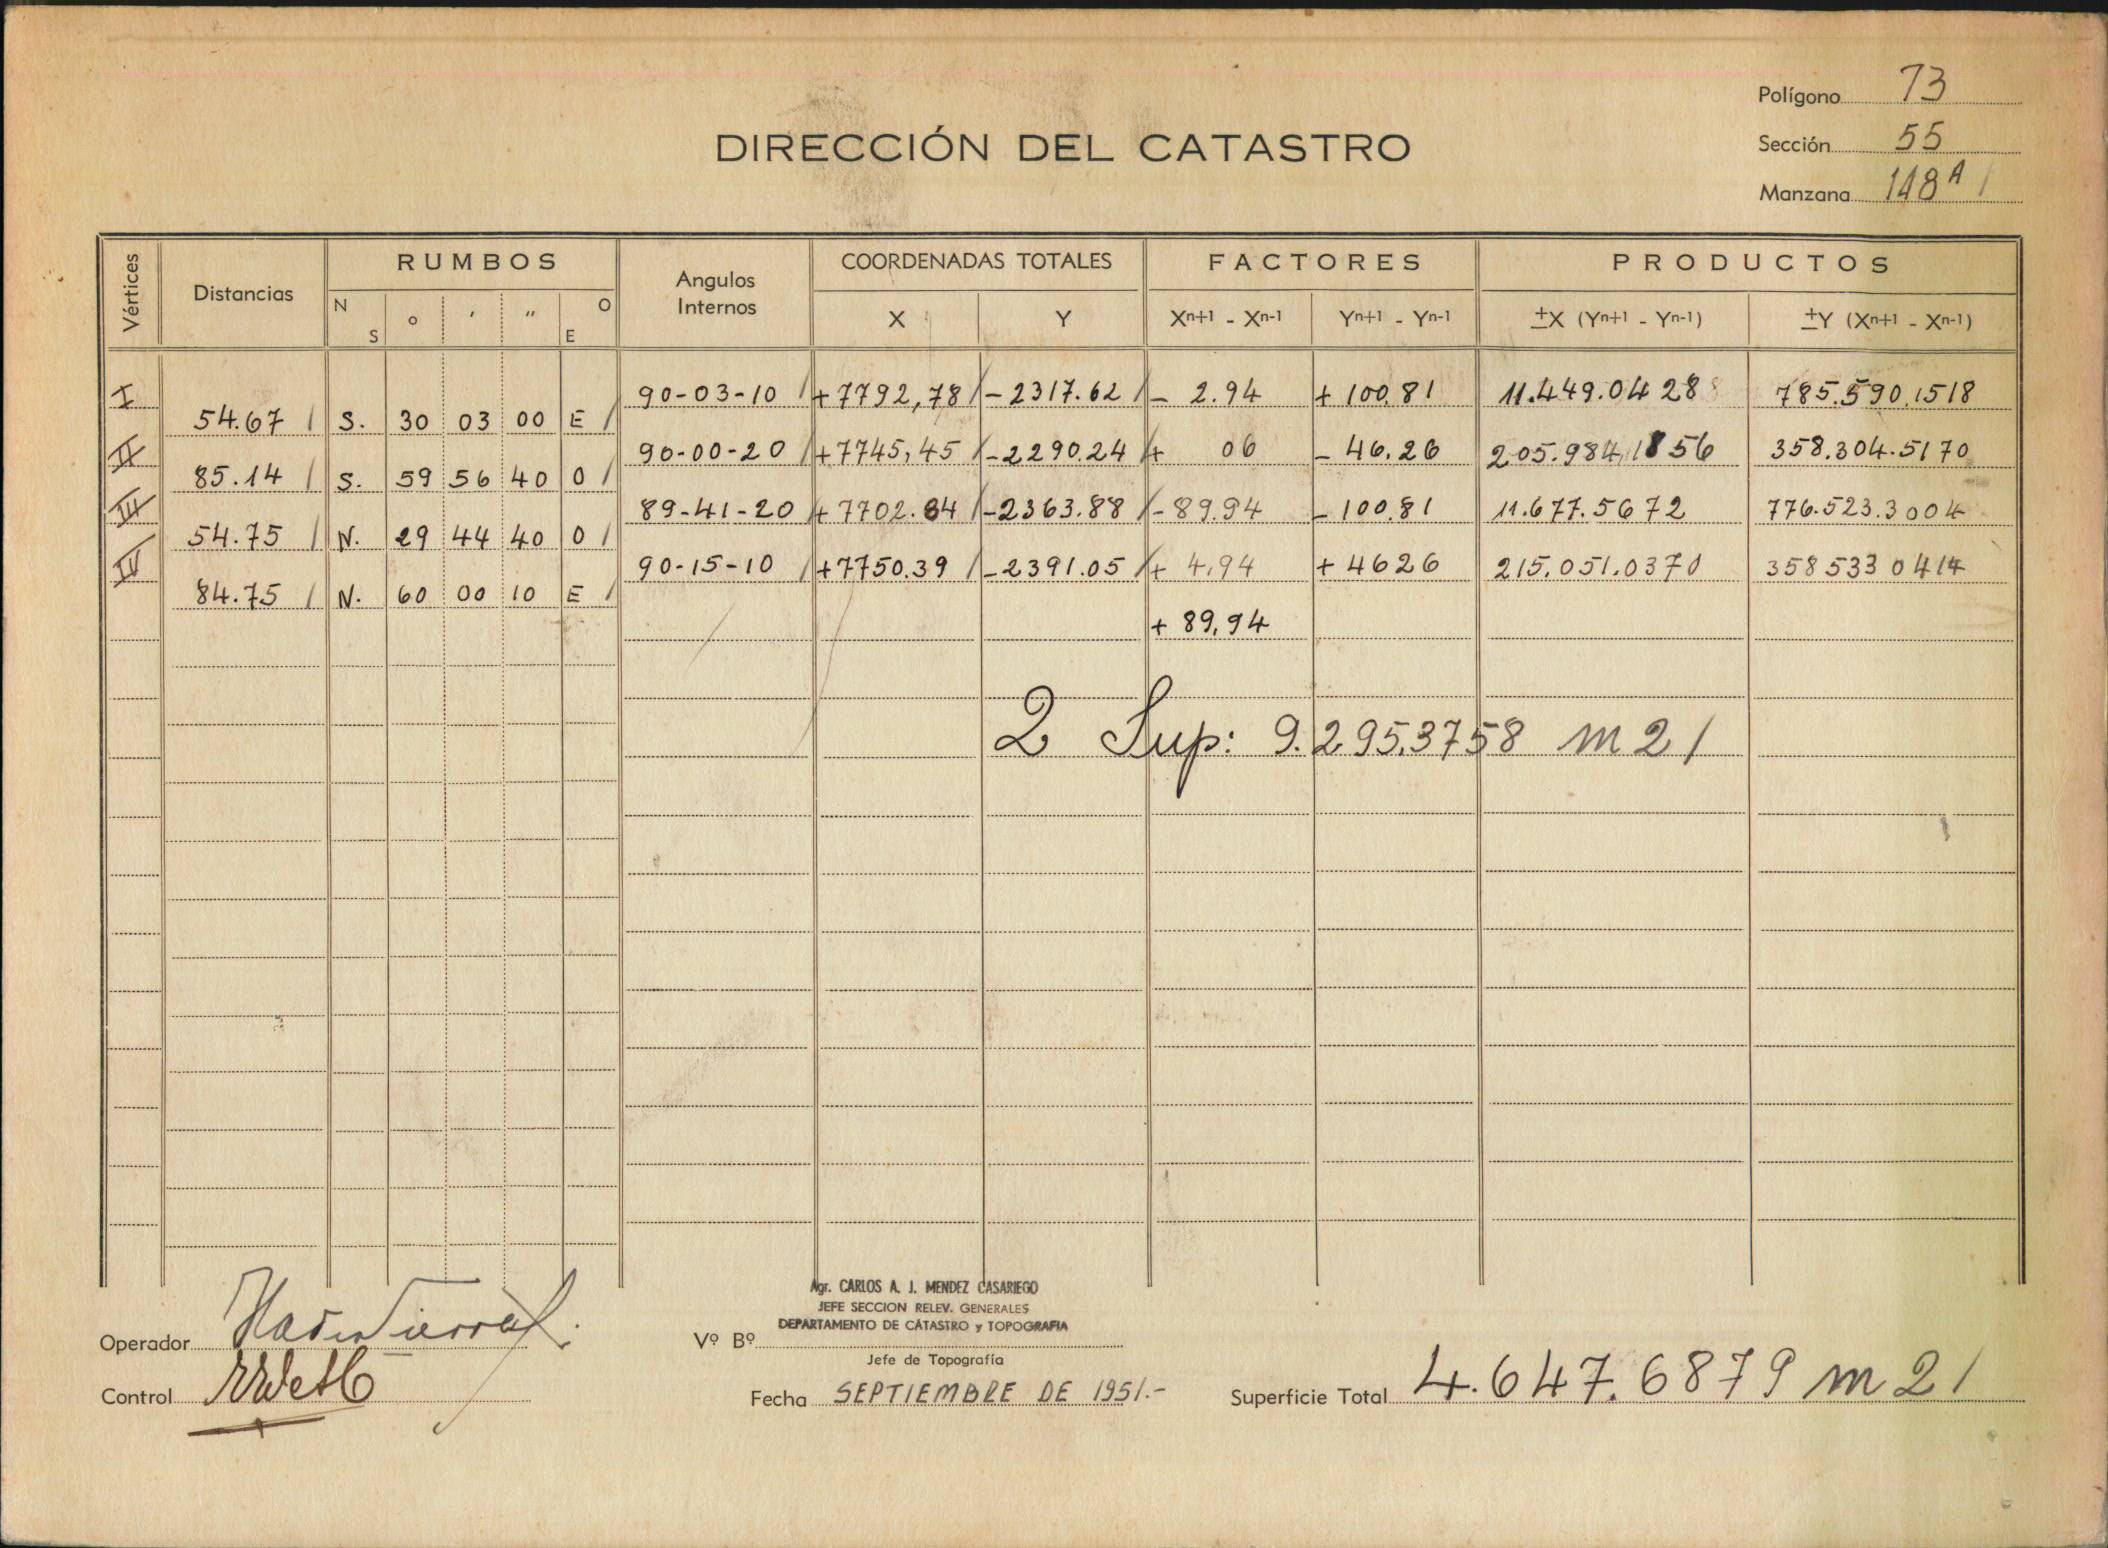 Polígono 73
DIRECCIÓN DEL CATASTRO
Sección 55
Manzana 148 A /
Vértices Distancias RUMBOS Angulos Internos COORDENADAS TOTALES FACTORES PRODUCTOS
N S ° ′ ″ O E X Y Xn+1 - Xn-1 Yn+1 - Yn-1 ±X (Yn+1 - Yn-1) ±Y (Xn+1 - Xn-1)
I 90-03-10 / +7792,78 / -2317.62 / - 2.94 + 100.81 11.449.0428 785.590.1518
54.67 / S. 30 03 00 E /
II 90-00-20 / +7745,45 / -2290.24 / + 06 - 46.26 205.984,1856 358.304.5170
85.14 / S. 59 56 40 O /
III 89-41-20 / +7702.84 / -2363.88 / - 89.94 - 100.81 11.677.5672 776.523.3004
54.75 / N. 29 44 40 O /
IV 90-15-10 / +7750.39 / -2391.05 / + 4,94 + 4626 215.051.0370 358533 0414
84.75 / N. 60 00 10 E /
+ 89,94
2 Sup: 9.295,3758 m2 /
Agr. CARLOS A. J. MENDEZ CASARIEGO
JEFE SECCION RELEV. GENERALES
DEPARTAMENTO DE CATASTRO y TOPOGRAFIA
Operador
Vº Bº
Jefe de Topografía
Control
Fecha SEPTIEMBRE DE 1951.-
Superficie Total 4.647.6879 m2 /